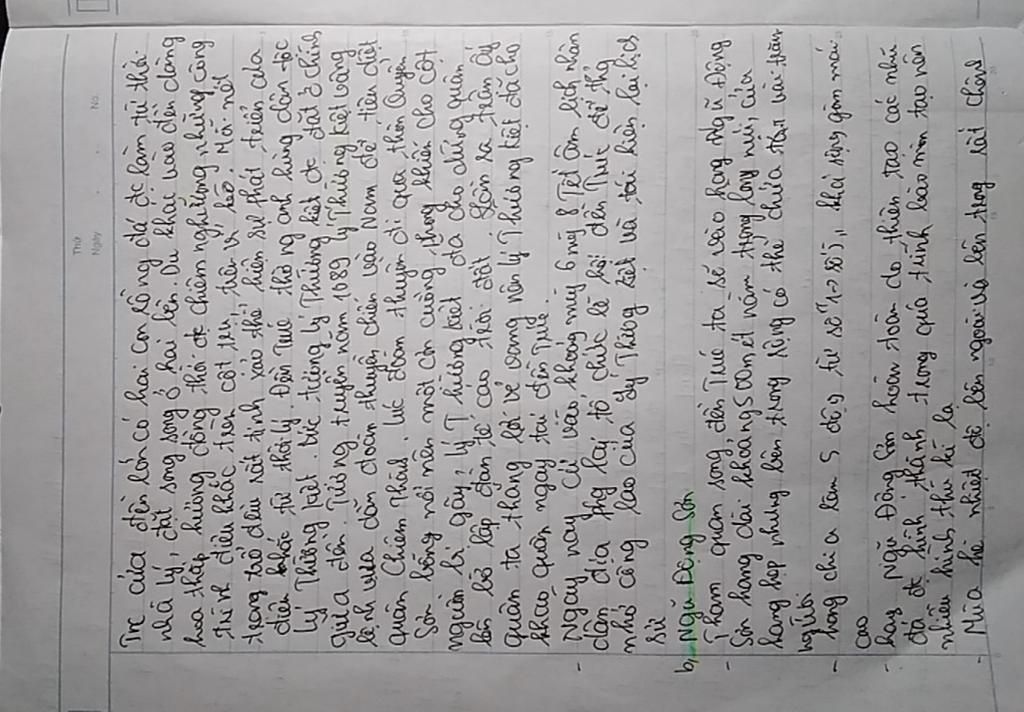 Thứ
Ngày
No.
Trc cửa đền lớn có hai con rồng đá đc làm từ thời
nhà Lý, đặt song song ở hai bên. Du khách vào đền dâng
hoa thắp hương đồng thời đc chiêm ngưỡng những công
trình điêu khắc trên cột trụ, trên vì kèo. Mỗi nét
trạm trổ đều rất tinh xảo thể hiện sự phát triển của
điêu khắc từ thời lý. Đền Trúc thờ ng anh hùng dân tộc
Lý Thường kiệt. bức tượng lý Thường kiệt đc đặt ở chính
giữa đền. Tương truyền năm 1089 lý Thường kiệt vâng
lệnh vua dẫn đoàn thuyền chiến vào Nam để tiễn diệt
quân Chiêm Thành. lúc đoàn thuyền đi qua thôn Quyển
Sơn bỗng nổi nên một cơn cuồng phong khiến cho cột
người bị gãy, lý Thường kiệt đã cho dừng quân
lên bờ lập đàn tế cáo trời đất. Sau ra trận ấy
quân ta thắng lợi vẻ vang nên lý Thường kiệt đã cho
khao quân ngay tại đền Trúc.
- Ngày nay cứ vào khoảng mùng 6 mùng 8 Tết âm lịch nhân
dân địa phg lại tổ chức lễ hội đền Trúc để thg
nhớ công lao của Lý Thường kiệt và tái hiện lại lịch
sử
b, Ngũ Động Sơn
- Tham quan song đền Trúc ta sẽ vào hang Ngũ Động
Sơn hang dài khoảng 500 mét nằm trong lòng núi, cửa
hang hẹp nhưng bên trong rộng có thể chứa tới vài trăm
người
- hang chia làm 5 động từ số "1->số 5", khá rộng gồm mái
cao
- hang Ngũ Động Sơn hoàn toàn do thiên tạo các nhũ
đá đc hình thành trong quá trình bào mòn tạo nên
nhiều hình thù kì lạ
- Mùa hè nhiệt độ bên ngoài và bên trong rất chênh